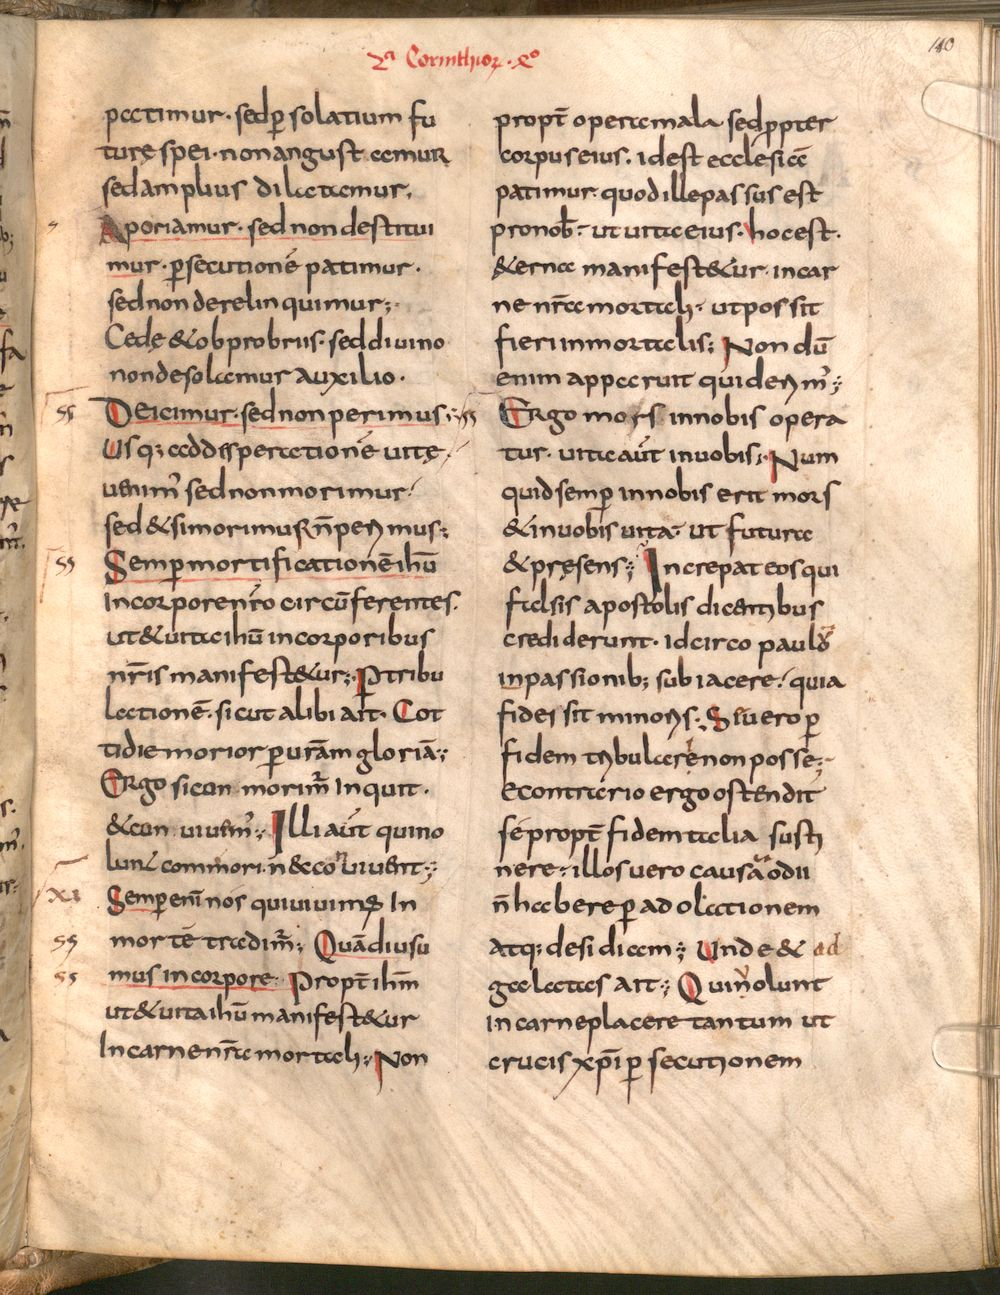 2ª Corinthioꝝ · xº
140
patimur · sed ꝑ solatium fu
turę spei · non angustamur
sed amplius dilatamur,
Aporiamur · sed non destitui
mur · ꝑsecutionē patimur ·
sed non derelinquimur;
Cede & obprobriis · sed diuino
non desolamur auxilio ·
Deicimur · sed non perimus;
Usq; ad desperationē uitę
uenim̄ sed non morimur
sed & si morimur n̄ perimus;
Semꝑ mortificationē ihū
In corpore nr̄o circūferentes ·
ut & uita ihū in corporibus
nr̄is manifest&ur; P tribu
lationē · sicut alibi ait · Cot
tidie morior ꝑ urām gloriā;
Ergo si con morim̄ inquit ·
& con uiuem̄; Illi aūt quino
lunt commori · n̄ & con uiuent;
xi
Semꝑ enī nos qui uiuimus In
mortē tradim̄; Quādiu su
mus in corpore · Propt̄ ihm̄
ut & uita ihū manifest&ur
In carne nr̄a mortali; Non
propt̄ opera mala sed ꝓpter
corpus eius · id est ecclesia
patimur · quod ille passus est
pro nob̄ · ut uita eius · hoc est ·
&erna manifest&ur · in car
ne nr̄a mortali · ut possit
fieri inmortalis; Non dū
enim apparuit quid erim̄;
Ergo mors in nobis opera
tur · uita aūt in uobis; Num
quid semꝑ in nobis erit mors
& in uobis uita · ut futura
& pręsens; Increpat eos qui
falsis apostolis dicentibus
crediderunt · idcirco paulū
in passionib; subiacere · quia
fidei sit minoris; Si uero ꝑ
fidem tribularē non posse;
E contrario ergo ostendit
se propt̄ fidem talia susti
nere · illos uero causā odii
n̄ habere ꝑ adolationem
atq; desidiam; Unde & ad
galatas ait; Qui uolunt
in carne placere tantum ut
crucis xp̄i ꝑsecutionem